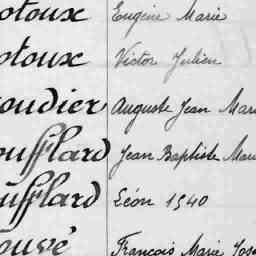 otoux Eugène Marie
otoux Victor Julien
oudier Auguste Jean Mari
oufflard Jean Baptiste Mari
oufflard Léon 1940
ouvé François Marie Jose